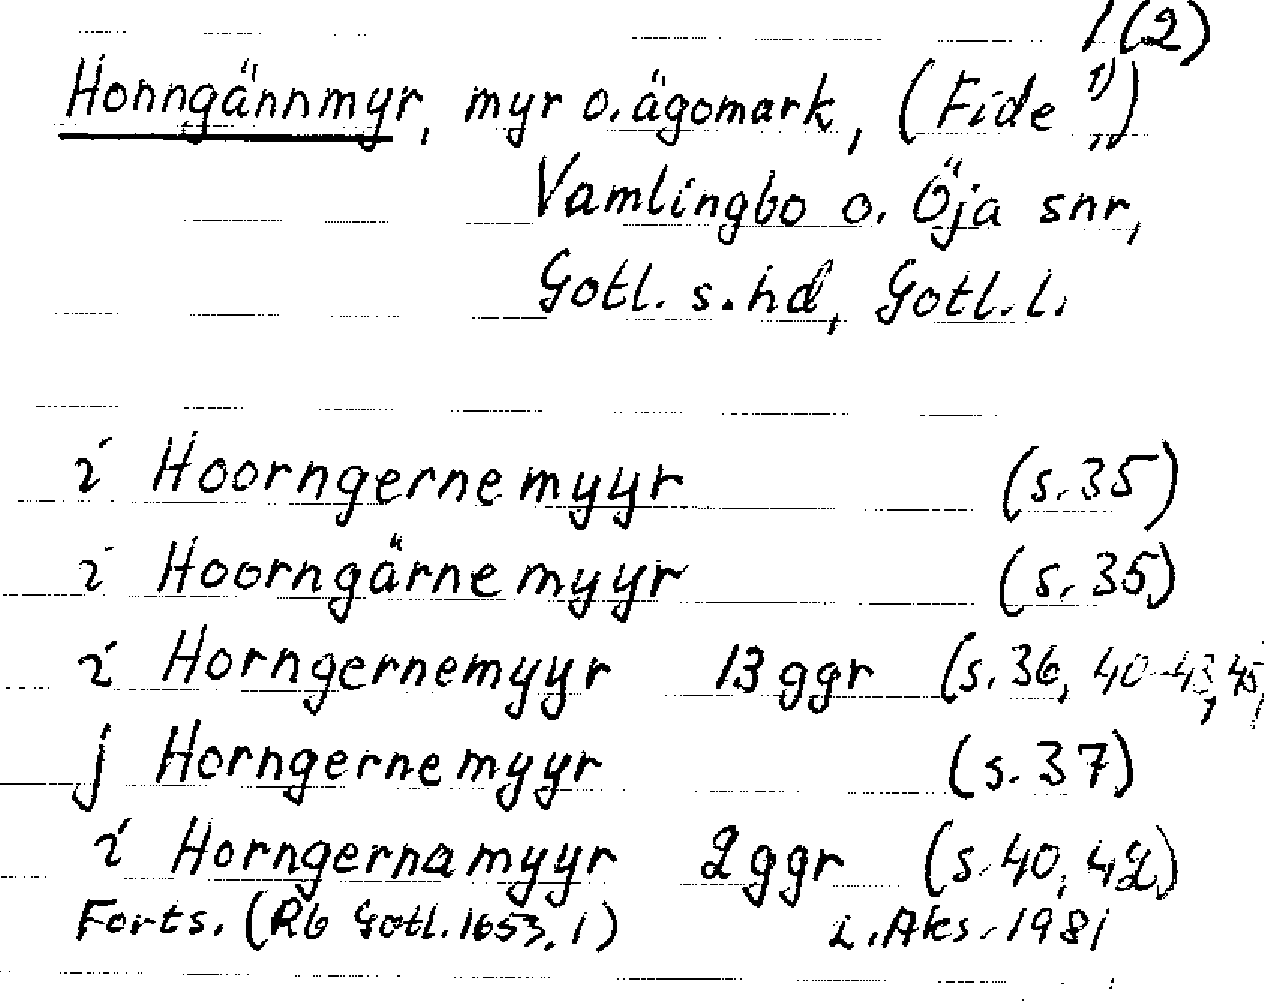 1(2)
Honngännmyr, myr o. ägomark, (Fide 1))
Vamlingbo o. Öja snr,
Gotl. s. hd, Gotl. l.
i Hoorngernemyyr (s. 35)
i Hoorngärnemyyr (s. 35)
i Horngernemyyr 13 ggr (s. 36, 40-43, 45,
j Horngernemyyr (s. 37)
i Horngernamyyr 2 ggr (s. 40, 42)
Forts. (Rb Gotl. 1653, 1) L. Aks. 1981